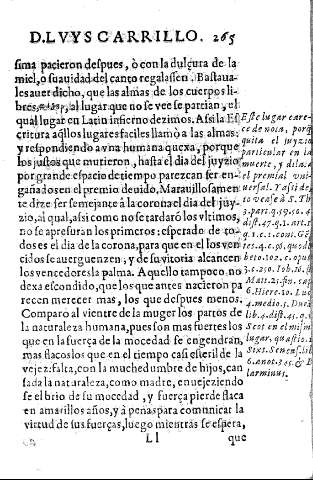 D. LVYS CARRILLO. 265
sima pacieron despues, ò con la dulçura de la
miel, o suauidad del canto regalassen. Bastaua-
les auer dicho, que las almas de los cuerpos li-
bres, al lugar que no se vee se partian, el
qual lugar en Latin infierno dezimos. Assi la Es
critura aq̃llos lugares faciles llamò a las almas:
y respondiendo a vna humana quexa, porque
los justos que murieron, hasta el dia del juyzio
por grande espacio de tiempo parezcan ser en-
gañados en el premio deuido. Marauillosamen
te dize ser semejante à la corona el dia del juy-
zio, al qual, assi como no se tardarõ los vltimos,
no se apresuran los primeros: esperado de to-
dos es el dia de la corona, para que en el los ven
cidos se auerguenzen; y de su vitoria alcancen
los vencedores la palma. Aquello tampoco no
dexa escondido, que los que antes nacieron pa
recen merecer mas, los que despues menos.
Comparo al vientre de la muger los partos de
la naturaleza humana, pues son mas fuertes los
que en la fuerça de la mocedad se engendran,
mas flacos los que en el tiempo casi esteril de la
vejez: falta, con la muchedumbre de hijos, can
sada la naturaleza, como madre, en uejeziendo
se el brio de su mocedad, y fuerça pierde flaca
en amarillos años, y à penas para comunicar la
virtud de sus fuerças, luego mientras se espera,
Ll que
Este lugar care-
ce de nota, por-
quita el juyzio
particular en la
muerte, y dila-
el premio al vni-
uersal. Y assi de
to vease à S. Th
3. part. q. 59. 
dist. 47. q. 1. art.
q. 1. cont. Gẽ-
tes. 
beto. 
3. c. 
Mat. 25. 
6. Hiere. 
4. medio 5. 
lib. 4. dist. 45. q.
Scot en el mism
lugar, 
Sixt. Senens.
6. anot. 345. & 
larminus.